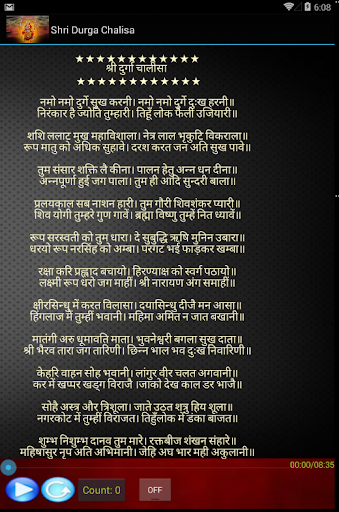 6:08
Shri Durga Chalisa
★★★★★★★★★★★
श्री दुर्गा चालीसा
★★★★★★★★★★★
नमो नमो दुर्गे सुख करनी। नमो नमो दुर्गे दुःख हरनी॥
निरंकार है ज्योति तुम्हारी। तिहूँ लोक फैली उजियारी॥
शशि ललाट मुख महाविशाला। नेत्र लाल भृकुटि विकराला॥
रूप मातु को अधिक सुहावे। दरश करत जन अति सुख पावे॥
तुम संसार शक्ति लै कीना। पालन हेतु अन्न धन दीना॥
अन्नपूर्णा हुई जग पाला। तुम ही आदि सुन्दरी बाला॥
प्रलयकाल सब नाशन हारी। तुम गौरी शिवशंकर प्यारी॥
शिव योगी तुम्हरे गुण गावें। ब्रह्मा विष्णु तुम्हें नित ध्यावें॥
रूप सरस्वती को तुम धारा। दे सुबुद्धि ऋषि मुनिन उबारा॥
धरयो रूप नरसिंह को अम्बा। परगट भई फाड़कर खम्बा॥
रक्षा करि प्रह्लाद बचायो। हिरण्याक्ष को स्वर्ग पठायो॥
लक्ष्मी रूप धरो जग माहीं। श्री नारायण अंग समाहीं॥
क्षीरसिन्धु में करत विलासा। दयासिन्धु दीजै मन आसा॥
हिंगलाज में तुम्हीं भवानी। महिमा अमित न जात बखानी॥
मातंगी अरु धूमावति माता। भुवनेश्वरी बगला सुख दाता॥
श्री भैरव तारा जग तारिणी। छिन्न भाल भव दुःख निवारिणी॥
केहरि वाहन सोह भवानी। लांगुर वीर चलत अगवानी॥
कर में खप्पर खड्ग विराजै। जाको देख काल डर भाजै॥
सोहै अस्त्र और त्रिशूला। जाते उठत शत्रु हिय शूला॥
नगरकोट में तुम्हीं विराजत। तिहुँलोक में डंका बाजत॥
शुम्भ निशुम्भ दानव तुम मारे। रक्तबीज शंखन संहारे॥
महिषासुर नृप अति अभिमानी। जेहि अघ भार मही अकुलानी॥
00:00/08:35
Count: 0
OFF